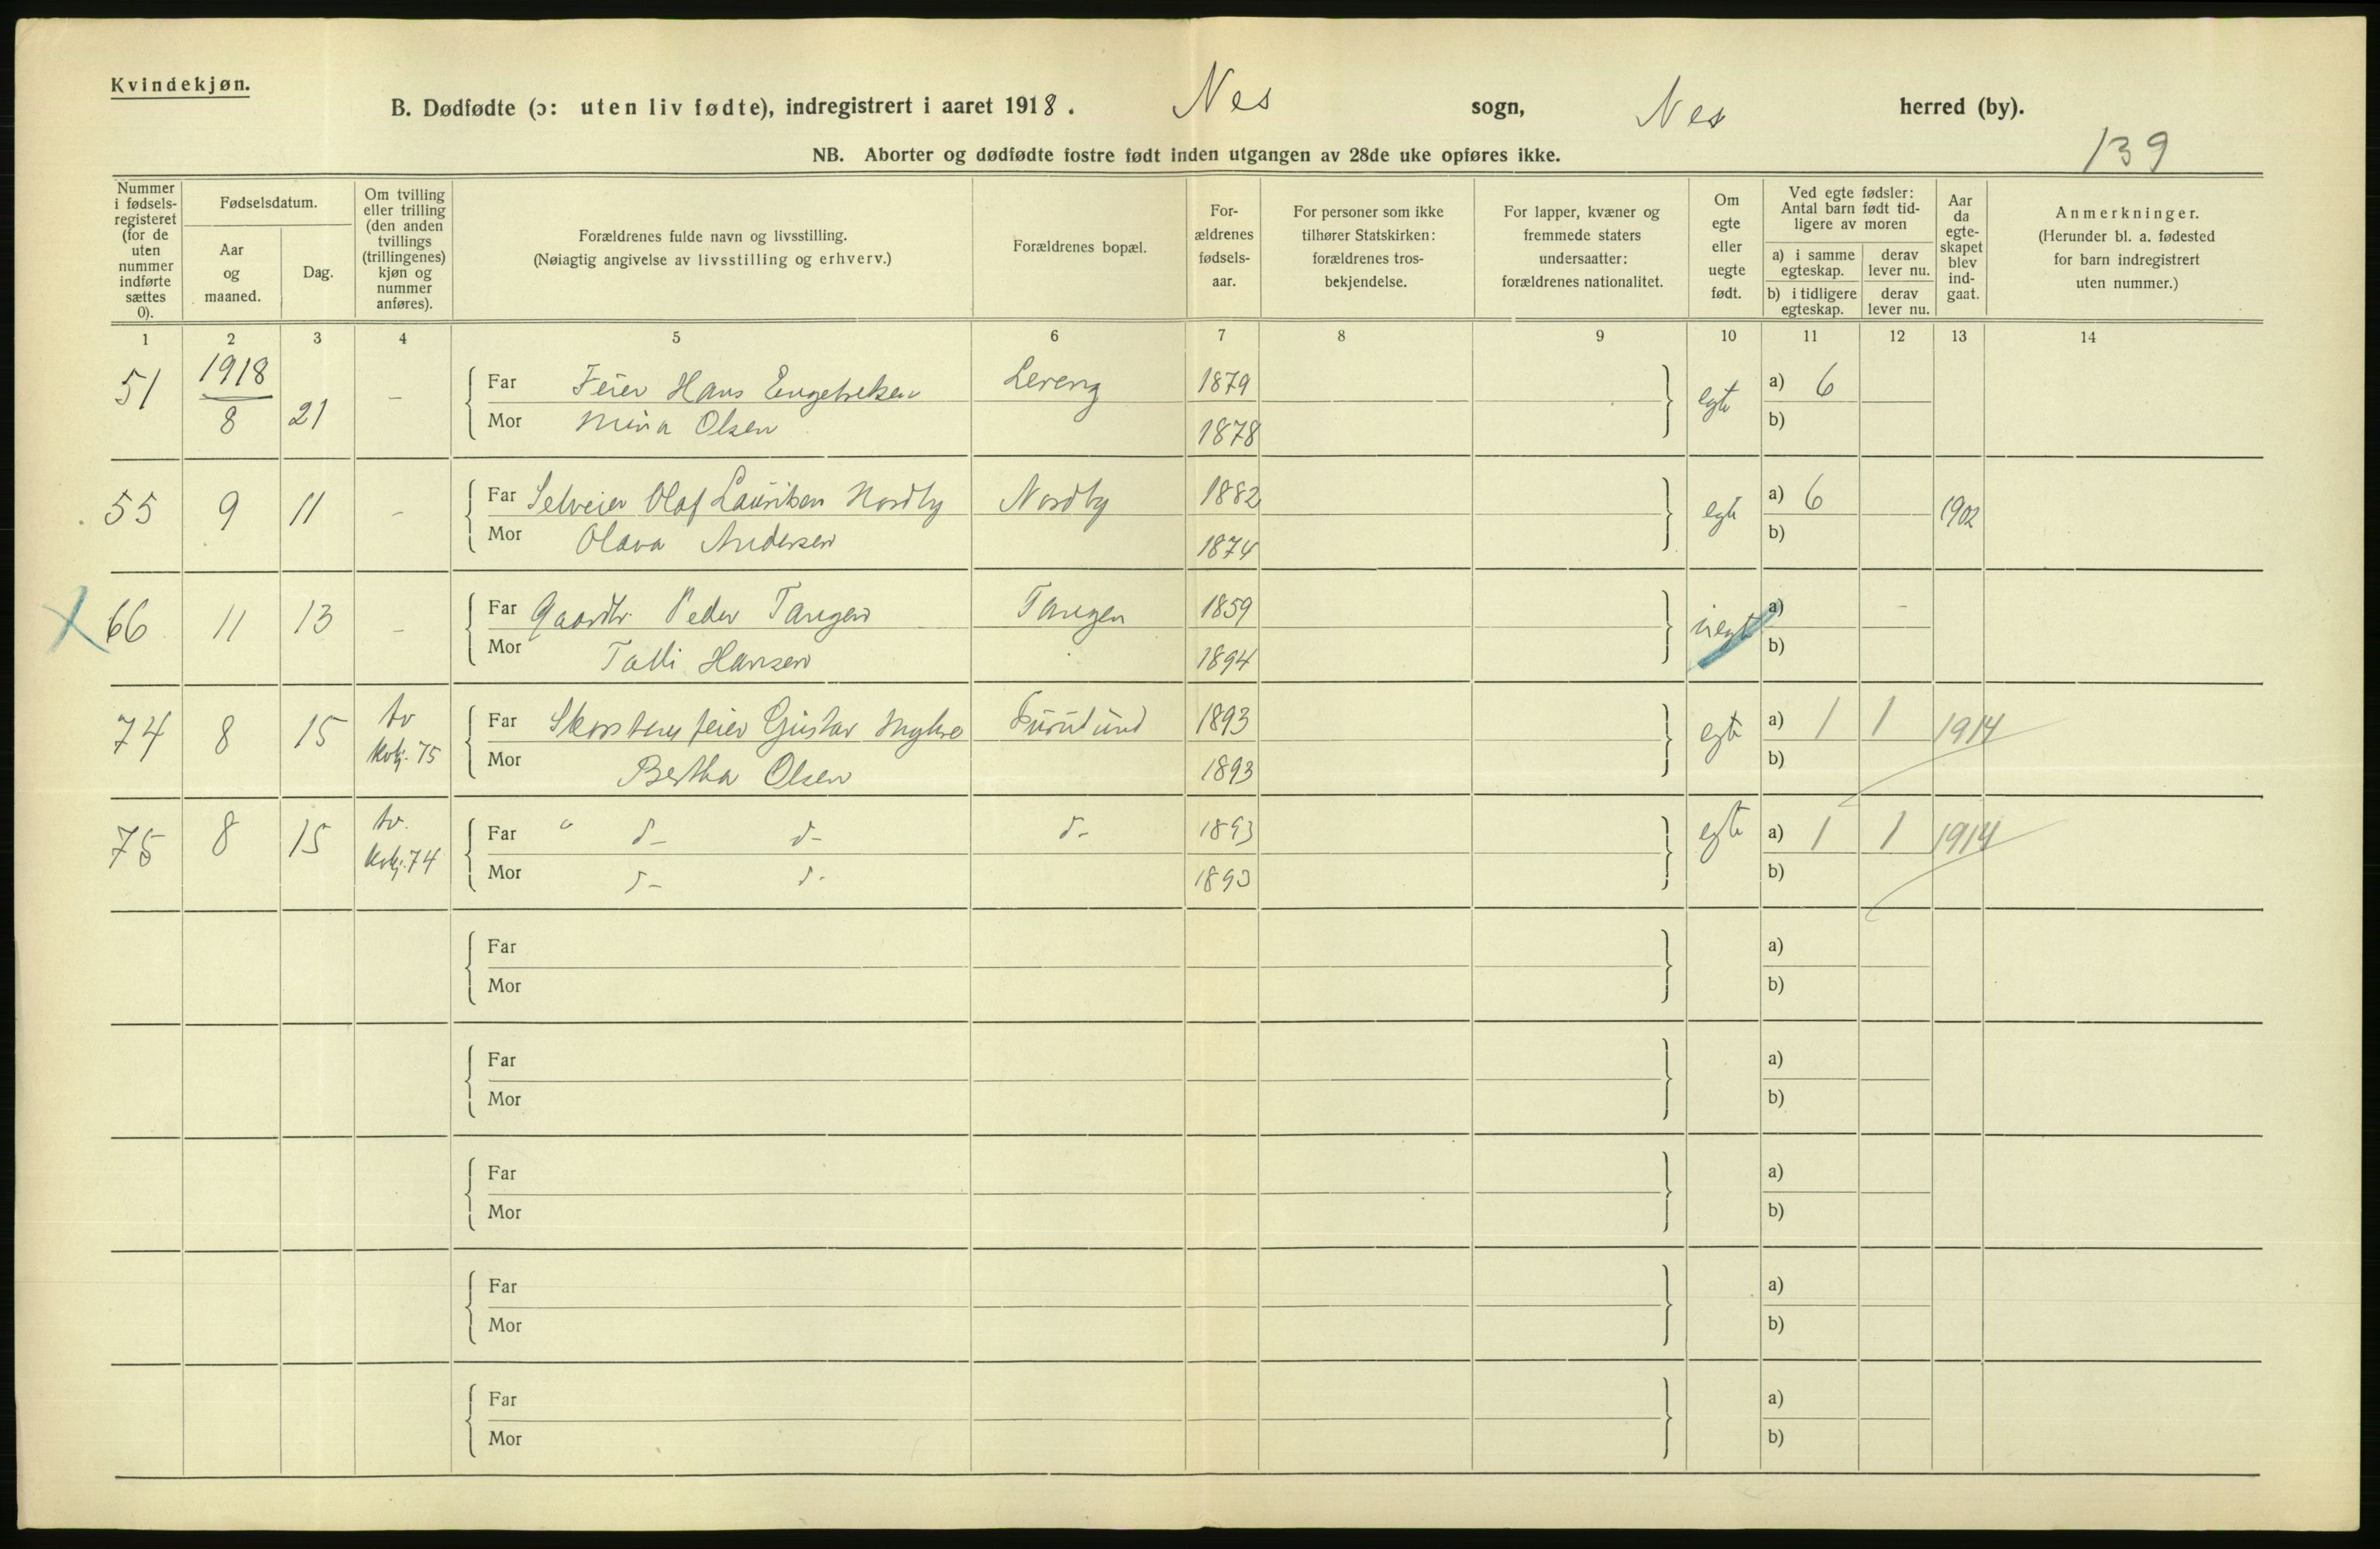 Kvindekjøn.
B. Dødfødte (ɔ: uten liv fødte), indregistrert i aaret 1918. Nes sogn, Nes herred (by).
NB. Aborter og dødfødte fostre født inden utgangen av 28de uke opføres ikke.
139
Nummer i fødselsregisteret (for de uten nummer indførte sættes 0).
Fødselsdatum.
Aar og maaned.
Dag.
Om tvilling eller trilling (den anden tvillings (trillingenes) kjøn og nummer anføres).
Forældrenes fulde navn og livsstilling.
(Nøiagtig angivelse av livsstilling og erhverv.)
Forældrenes bopæl.
Forældrenes fødselsaar.
For personer som ikke tilhører Statskirken: forældrenes trosbekjendelse.
For lapper, kvæner og fremmede staters undersaatter: forældrenes nationalitet.
Om egte eller uegte født.
Ved egte fødsler: Antal barn født tidligere av moren
a) i samme egteskap.
derav lever nu.
b) i tidligere egteskap.
derav lever nu.
Aar da egteskapet blev indgaat.
Anmerkninger.
(Herunder bl. a. fødested for barn indregistrert uten nummer.)
1 2 3 4 5 6 7 8 9 10 11 12 13 14
51 1918 8 21 - Far Feier Hans Engebretsen 1879 egte a) 6
Mor Mina Olsen 1878 b)
55 9 11 - Far Selveier Olaf Lauritsen Nordby Nordby 1882 egte a) 6 1902
Mor Olava Andersen 1874 b)
66 11 13 - Far Gaardbr Peder Tangen Tangen 1859 uegte a) -
Mor Hansen 1894 b)
74 8 15 tv kvkj. 75 Far Skorstensfeier Gustav Myhre 1893 egte a) 1 1 1914
Mor Bertha Olsen 1893 b)
75 8 15 tv. kvkj. 74 Far " d- d- d- 1893 egte a) 1 1 1914
Mor d- d- 1893 b)
Far a)
Mor b)
Far a)
Mor b)
Far a)
Mor b)
Far a)
Mor b)
Far a)
Mor b)